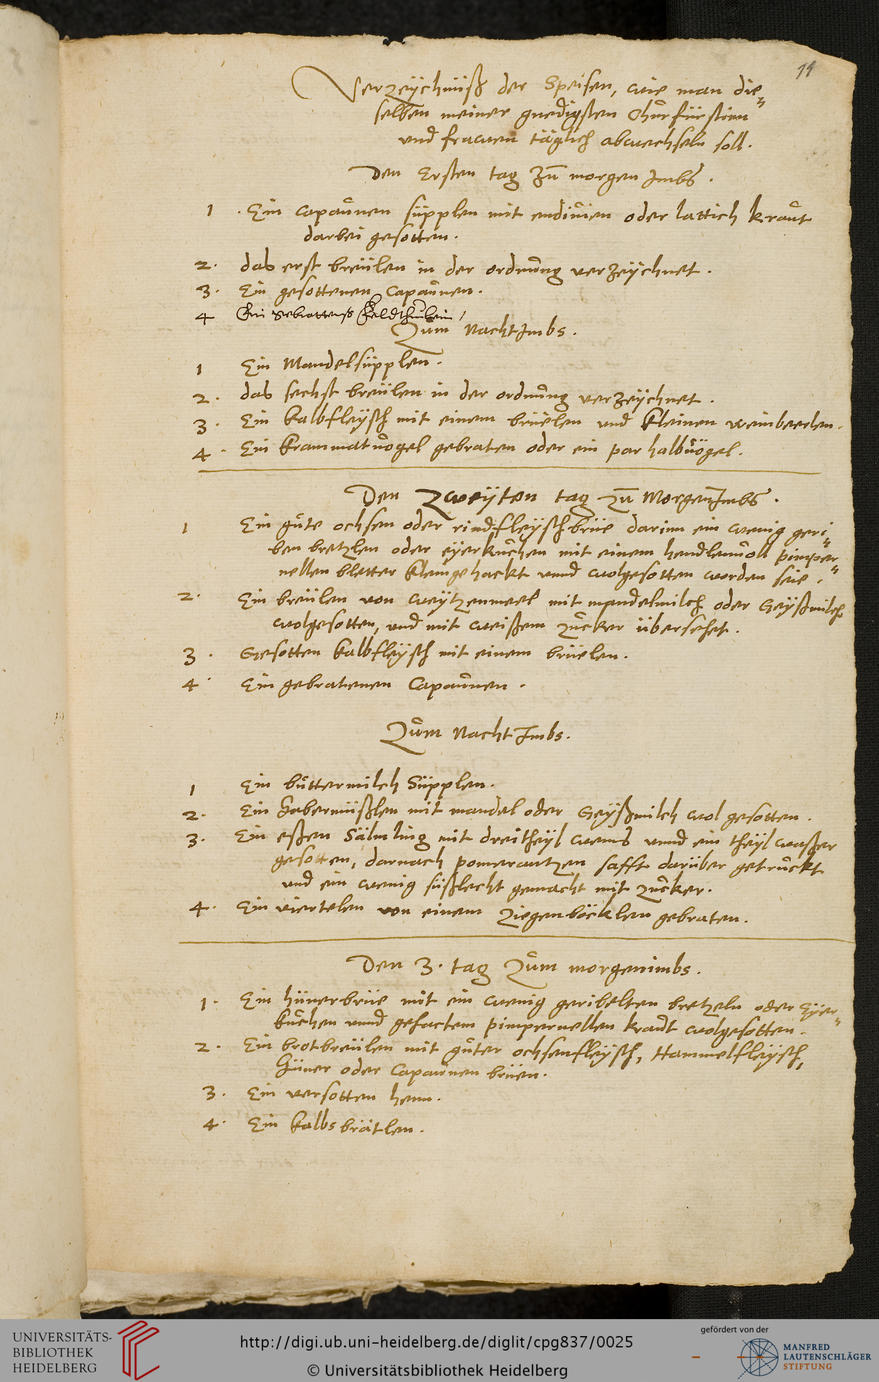 11
Verzeÿchnüß der Speisen, wie man die¬
selben meiner gnedigsten Chůrfürstinn
vnd frawen täglich abwechseln soll.
Den Ersten tag zů morgen Imbß.
1 . Ein capaůnen süpplen mit endiuien oder lattich kraůt
darbei gesotten.
2. das erst breülen in der ordnůng verzeÿchnet.
3. Ein gesottenen Capaůnen.
4 Ein gebrattenß Feldthůnlein /
Zům Nacht Imbs.
1 Ein Mandelsüpplen.
2. das sechst breülen in der ordnůng verzeÿchnet.
3. Ein kalbfleÿsch mit einem brüelen vnd kleinen weinbeerlen.
4. Ein krammatuogel gebraten oder ein par halbuögel.
Den Zweÿten tag zů MorgenImbß.
1 Ein gůte ochsen oder rindfleÿschbrüe darinn ein wenig geri¬
ben bretzlen oder eÿerkůchen mit einem hendlenuoll pimper¬
nellen bletter kleingehackt vnnd wolgesotten worden seie.
2. Ein breülen von weÿtzenmeel mit mandelmilch oder Geÿßmilch
wolgesotten, vnd mit weißem zůcker übersehet.
3. Gesotten kalbfleÿsch mit einem brüelen.
4 Ein gebratenen Capaůnen.
Zům Nacht Imbs.
1 Ein bůttermilch Süpplen.
2. Ein habermüßlen mit mandel oder Geÿßmilch wol gesotten.
3. Ein eßen Sälmling mit dreitheÿl weins vnnd ein theÿl waßer
gesotten, darnach pomerantzen safft darüber getrůckt
vnd ein wenig süßlecht gemacht mit zůcker.
4. Ein viertelen von einem Ziegenböcklen gebraten.
Den 3. tag Zům morgenimbs.
1. Ein hünerbrüe mit ein wenig geribelten bretzeln oder Eÿer¬
kůchen vnnd gehactem pimpernellen kraůt wolgesotten.
2. Ein brotbreülen mit gůter ochsenfleÿsch, Hammelfleÿsch,
Hüner oder Capaůnen brüen.
3. Ein versotten henn.
4. Ein kalbsbrätlen.
UNIVERSITÄTS-
BIBLIOTHEK
HEIDELBERG
http://digi.ub.uni-heidelberg.de/diglit/cpg837/0025
© Universitätsbibliothek Heidelberg
gefördert von der
MANFRED
LAUTENSCHLÄGER
STIFTUNG